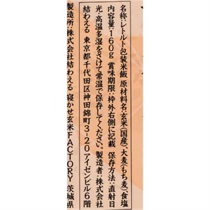 名称:レトルト包装米飯 原材料名:玄米(国産)、大麦、もち麦、食塩
内容量:160g 賞味期限:枠外右側に記載 保存方法:直射日
光、高温多湿をさけて常温で保存してください。製造者:株式会社
結わえる 東京都千代田区神田錦町3-20 アイゼンビル6階
製造所:株式会社結わえる 寝かせ玄米FACTORY茨城県